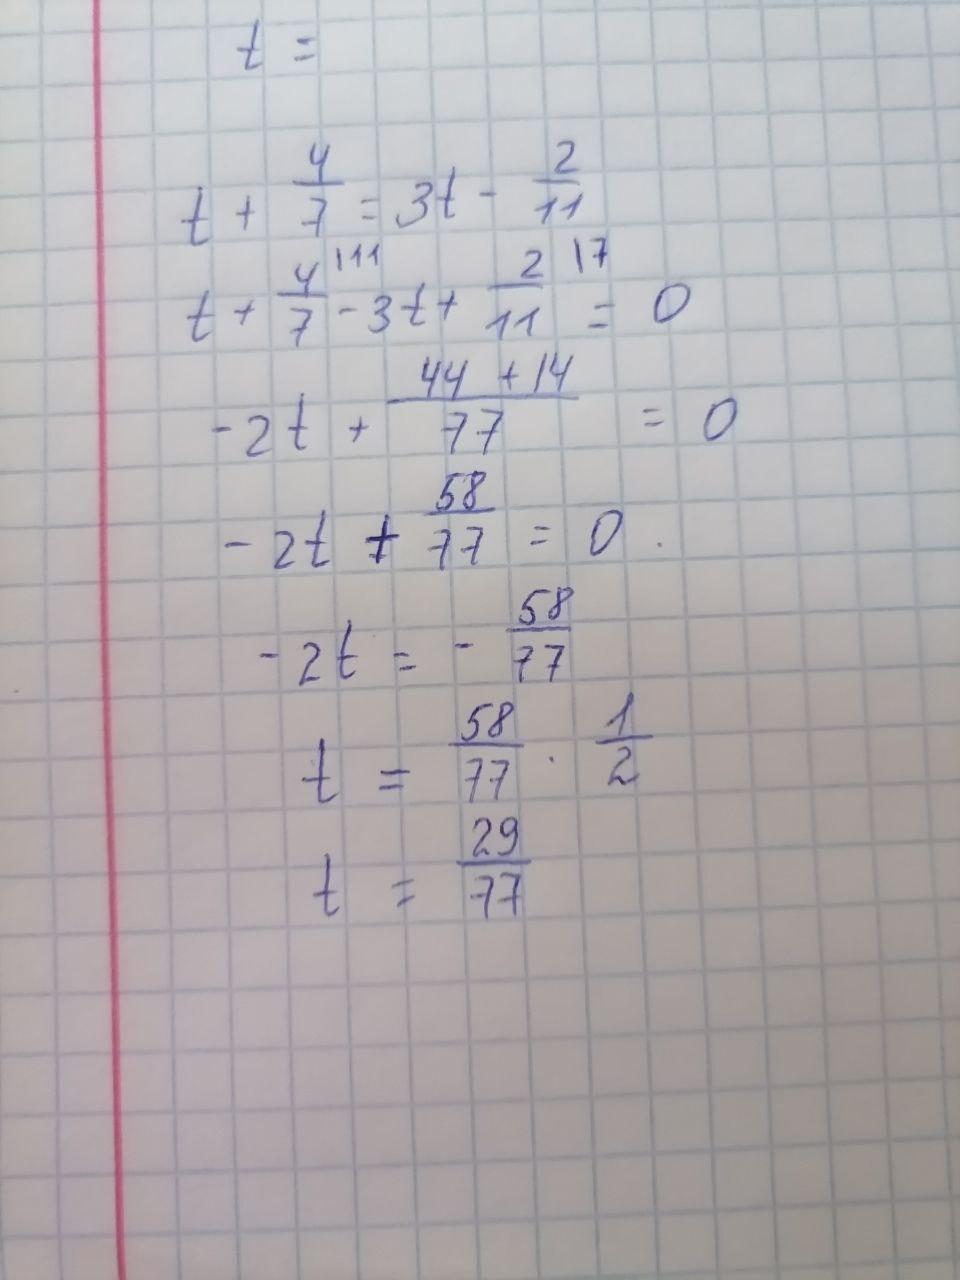 t =
t + 4/7 = 3t - 2/11
t + 4/7 |11 - 3t + 2/11 |7 = 0
-2t + 44 + 14/77 = 0
-2t + 58/77 = 0.
-2t = - 58/77
t = 58/77 · 1/2
t = 29/77